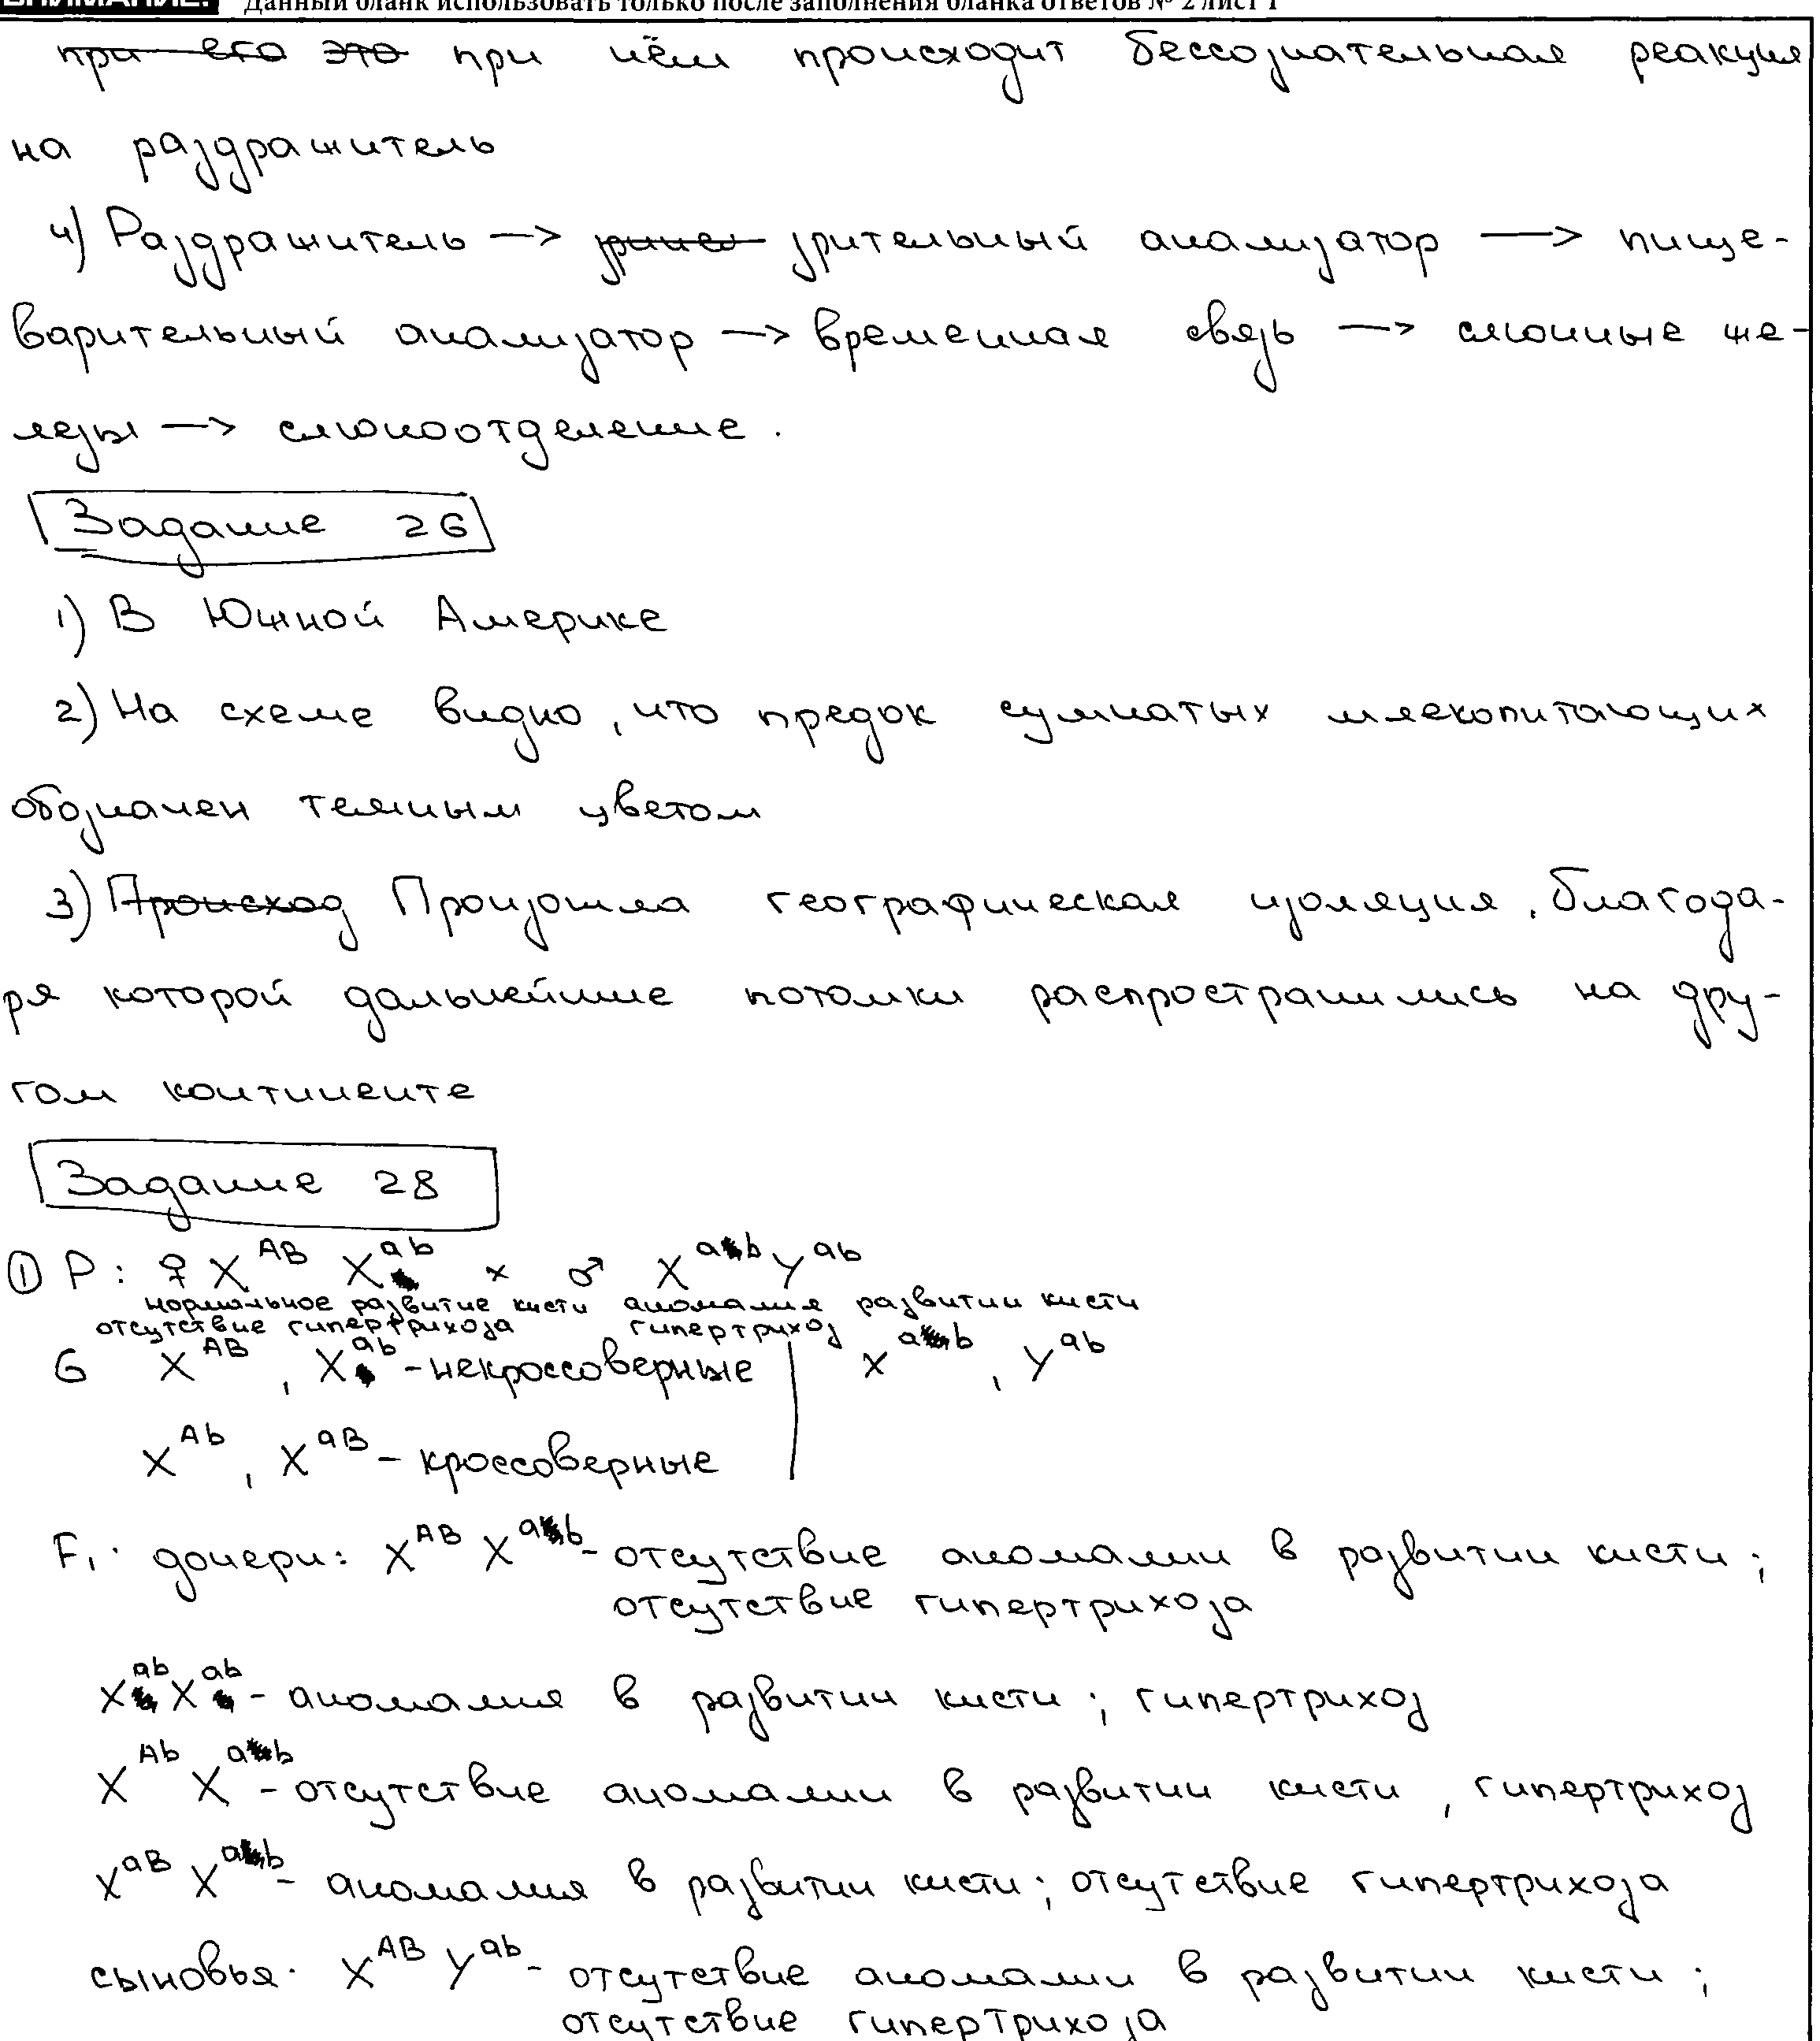 ВНИМАНИЕ! Данный бланк использовать только после заполнения бланка ответов № 2 лист 1
при его это при нём происходит бессознательная реакция
на раздражитель
4) Раздражитель —> зрительный анализатор —> пище-
варительный анализатор —> временная связь —> слюнные же-
лезы —> слюноотделение.
Задание 26
1) В Южной Америке
2) На схеме видно, что предок сумчатых млекопитающих
обозначен темным цветом
3) Происход Произошла географическая изоляция, благода-
ря которой дальнейшие потомки распространились на дру-
гом континенте
Задание 28
① P: ♀ X^AB X^ab × ♂ X^ab Y^ab
нормальное развитие кисти аномалия развитии кисти
отсутствие гипертрихоза гипертрихоз
G X^AB, X^ab - некроссоверные | X^ab, Y^ab
X^Ab, X^aB - кроссоверные
F₁. дочери: X^AB X^ab - отсутствие аномалии в развитии кисти;
отсутствие гипертрихоза
X^ab X^ab - аномалия в развитии кисти; гипертрихоз
X^Ab X^ab - отсутствие аномалии в развитии кисти, гипертрихоз
X^aB X^ab - аномалия в развитии кисти; отсутствие гипертрихоза
сыновья. X^AB Y^ab - отсутствие аномалии в развитии кисти;
отсутствие гипертрихоза